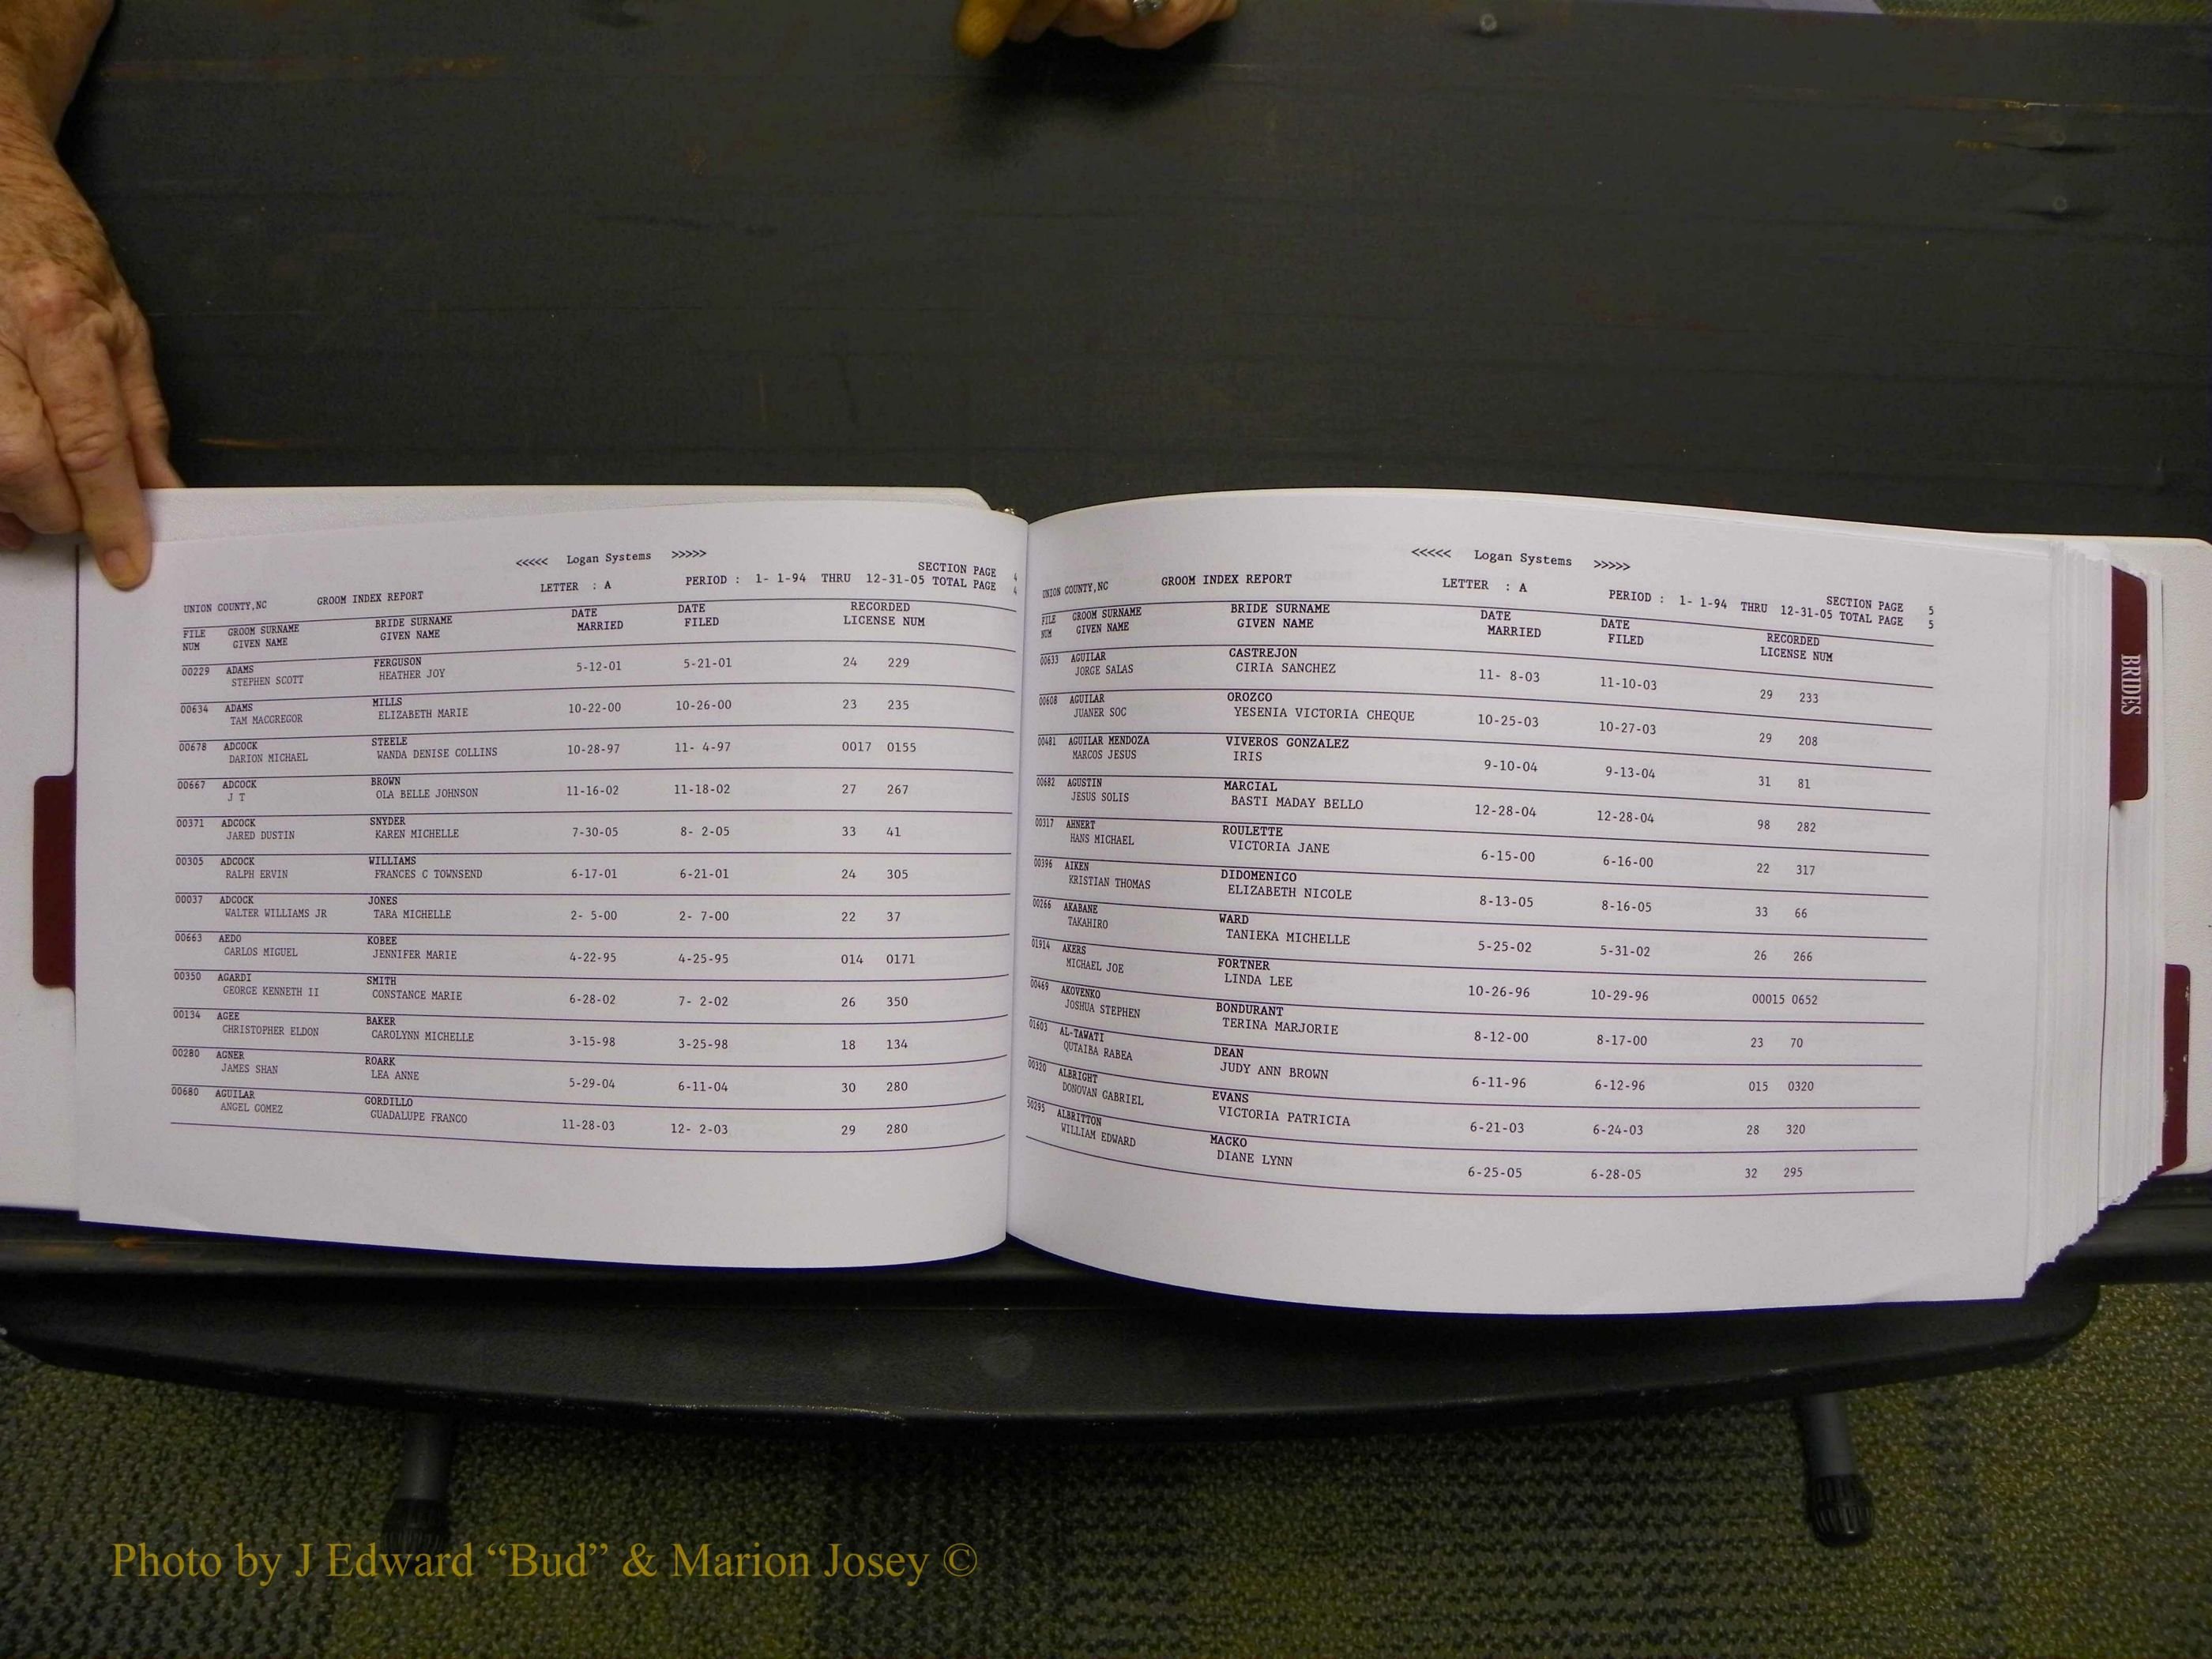 <<<<< Logan Systems >>>>>
SECTION PAGE 4
LETTER : A PERIOD : 1- 1-94 THRU 12-31-05 TOTAL PAGE 4
UNION COUNTY,NC GROOM INDEX REPORT
FILE GROOM SURNAME BRIDE SURNAME DATE DATE RECORDED
NUM GIVEN NAME GIVEN NAME MARRIED FILED LICENSE NUM
00229 ADAMS FERGUSON 5-12-01 5-21-01 24 229
STEPHEN SCOTT HEATHER JOY
00634 ADAMS MILLS 10-22-00 10-26-00 23 235
TAM MACGREGOR ELIZABETH MARIE
00678 ADCOCK STEELE 10-28-97 11- 4-97 0017 0155
DARION MICHAEL WANDA DENISE COLLINS
00667 ADCOCK BROWN 11-16-02 11-18-02 27 267
J T OLA BELLE JOHNSON
00371 ADCOCK SNYDER 7-30-05 8- 2-05 33 41
JARED DUSTIN KAREN MICHELLE
00305 ADCOCK WILLIAMS 6-17-01 6-21-01 24 305
RALPH ERVIN FRANCES C TOWNSEND
00037 ADCOCK JONES 2- 5-00 2- 7-00 22 37
WALTER WILLIAMS JR TARA MICHELLE
00663 AEDO KOBEE 4-22-95 4-25-95 014 0171
CARLOS MIGUEL JENNIFER MARIE
00350 AGARDI SMITH 6-28-02 7- 2-02 26 350
GEORGE KENNETH II CONSTANCE MARIE
00134 AGEE BAKER 3-15-98 3-25-98 18 134
CHRISTOPHER ELDON CAROLYNN MICHELLE
00280 AGNER ROARK 5-29-04 6-11-04 30 280
JAMES SHAN LEA ANNE
00680 AGUILAR GORDILLO 11-28-03 12- 2-03 29 280
ANGEL GOMEZ GUADALUPE FRANCO
<<<<< Logan Systems >>>>>
UNION COUNTY,NC GROOM INDEX REPORT LETTER : A PERIOD : 1- 1-94 THRU 12-31-05 TOTAL PAGE 5
SECTION PAGE 5
FILE GROOM SURNAME BRIDE SURNAME DATE DATE RECORDED
NUM GIVEN NAME GIVEN NAME MARRIED FILED LICENSE NUM
00633 AGUILAR CASTREJON 11- 8-03 11-10-03 29 233
JORGE SALAS CIRIA SANCHEZ
00608 AGUILAR OROZCO 10-25-03 10-27-03 29 208
JUANER SOC YESENIA VICTORIA CHEQUE
00481 AGUILAR MENDOZA VIVEROS GONZALEZ 9-10-04 9-13-04 31 81
MARCOS JESUS IRIS
00682 AGUSTIN MARCIAL 12-28-04 12-28-04 98 282
JESUS SOLIS BASTI MADAY BELLO
00317 AHNERT ROULETTE 6-15-00 6-16-00 22 317
HANS MICHAEL VICTORIA JANE
00396 AIKEN DIDOMENICO 8-13-05 8-16-05 33 66
KRISTIAN THOMAS ELIZABETH NICOLE
00266 AKABANE WARD 5-25-02 5-31-02 26 266
TAKAHIRO TANIEKA MICHELLE
01914 AKERS FORTNER 10-26-96 10-29-96 00015 0652
MICHAEL JOE LINDA LEE
00469 AKOVENKO BONDURANT 8-12-00 8-17-00 23 70
JOSHUA STEPHEN TERINA MARJORIE
01603 AL-TAWATI DEAN 6-11-96 6-12-96 015 0320
QUTAIBA RABEA JUDY ANN BROWN
00320 ALBRIGHT EVANS 6-21-03 6-24-03 28 320
DONOVAN GABRIEL VICTORIA PATRICIA
50295 ALBRITTON MACKO 6-25-05 6-28-05 32 295
WILLIAM EDWARD DIANE LYNN
BRIDES
Photo by J Edward “Bud” & Marion Josey ©